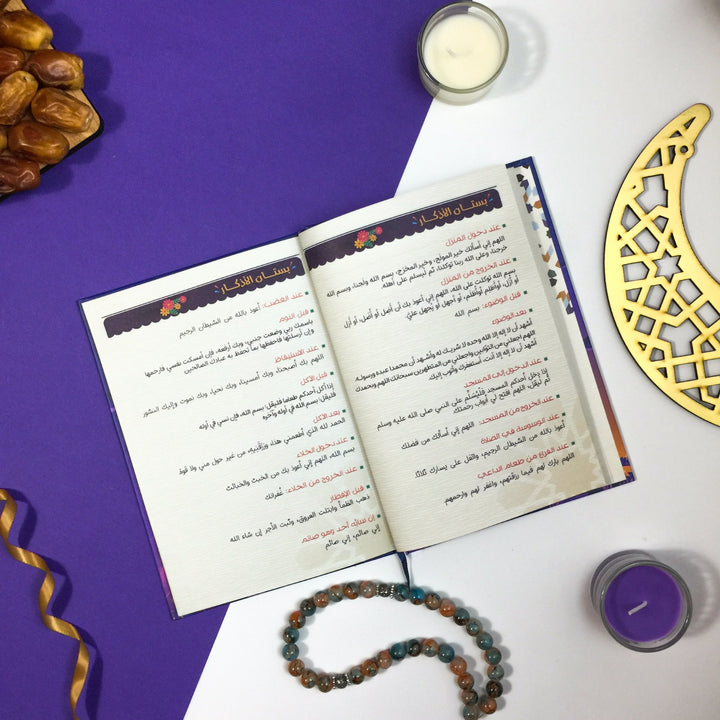 بستان الأذكار
عند دخول المنزل
اللهم إني أسألك خير المولج، وخير المخرج، بسم الله ولجنا، وبسم الله
خرجنا، وعلى الله ربنا توكلنا، ثم ليسلم على أهله.
عند الخروج من المنزل
بسم الله توكلت على الله، اللهم إني أعوذ بك أن أضل أو أضل، أو أزل
أو أزل، أو أظلم أو أظلم، أو أجهل أو يجهل علي.
قبل الوضوء: بسم الله
بعد الوضوء
أشهد أن لا إله إلا الله وحده لا شريك له وأشهد أن محمدا عبده ورسوله،
اللهم اجعلني من التوابين واجعلني من المتطهرين سبحانك اللهم وبحمدك
أشهد أن لا إله إلا أنت، أستغفرك وأتوب إليك.
عند الدخول إلى المسجد
إذا دخل أحدكم المسجد فليسلم على النبي صلى الله عليه وسلم
ثم ليقل: اللهم افتح لي أبواب رحمتك.
عند الخروج من المسجد: اللهم إني أسألك من فضلك
عند الوسوسة في الصلاة
أعوذ بالله من الشيطان الرجيم، واتفل على يسارك ثلاثا
عند الفراغ من طعام الداعي
اللهم بارك لهم فيما رزقتهم، واغفر لهم وارحمهم
بستان الأذكار
عند الغضب: أعوذ بالله من الشيطان الرجيم
قبل النوم
باسمك ربي وضعت جنبي، وبك أرفعه، فإن أمسكت نفسي فارحمها
وإن أرسلتها فاحفظها بما تحفظ به عبادك الصالحين
عند الاستيقاظ
اللهم بك أصبحنا، وبك أمسينا، وبك نحيا، وبك نموت وإليك النشور
قبل الأكل
إذا أكل أحدكم طعاما فليقل: بسم الله، فإن نسي في أوله
فليقل بسم الله في أوله وآخره
بعد الأكل
الحمد لله الذي أطعمني هذا، ورزقنيه، من غير حول مني ولا قوة
عند دخول الخلاء
بسم الله، اللهم إني أعوذ بك من الخبث والخبائث
عند الخروج من الخلاء: غفرانك
قبل الإفطار
ذهب الظمأ وابتلت العروق، وثبت الأجر إن شاء الله
إن سابه أحد وهو صائم
إني صائم، إني صائم